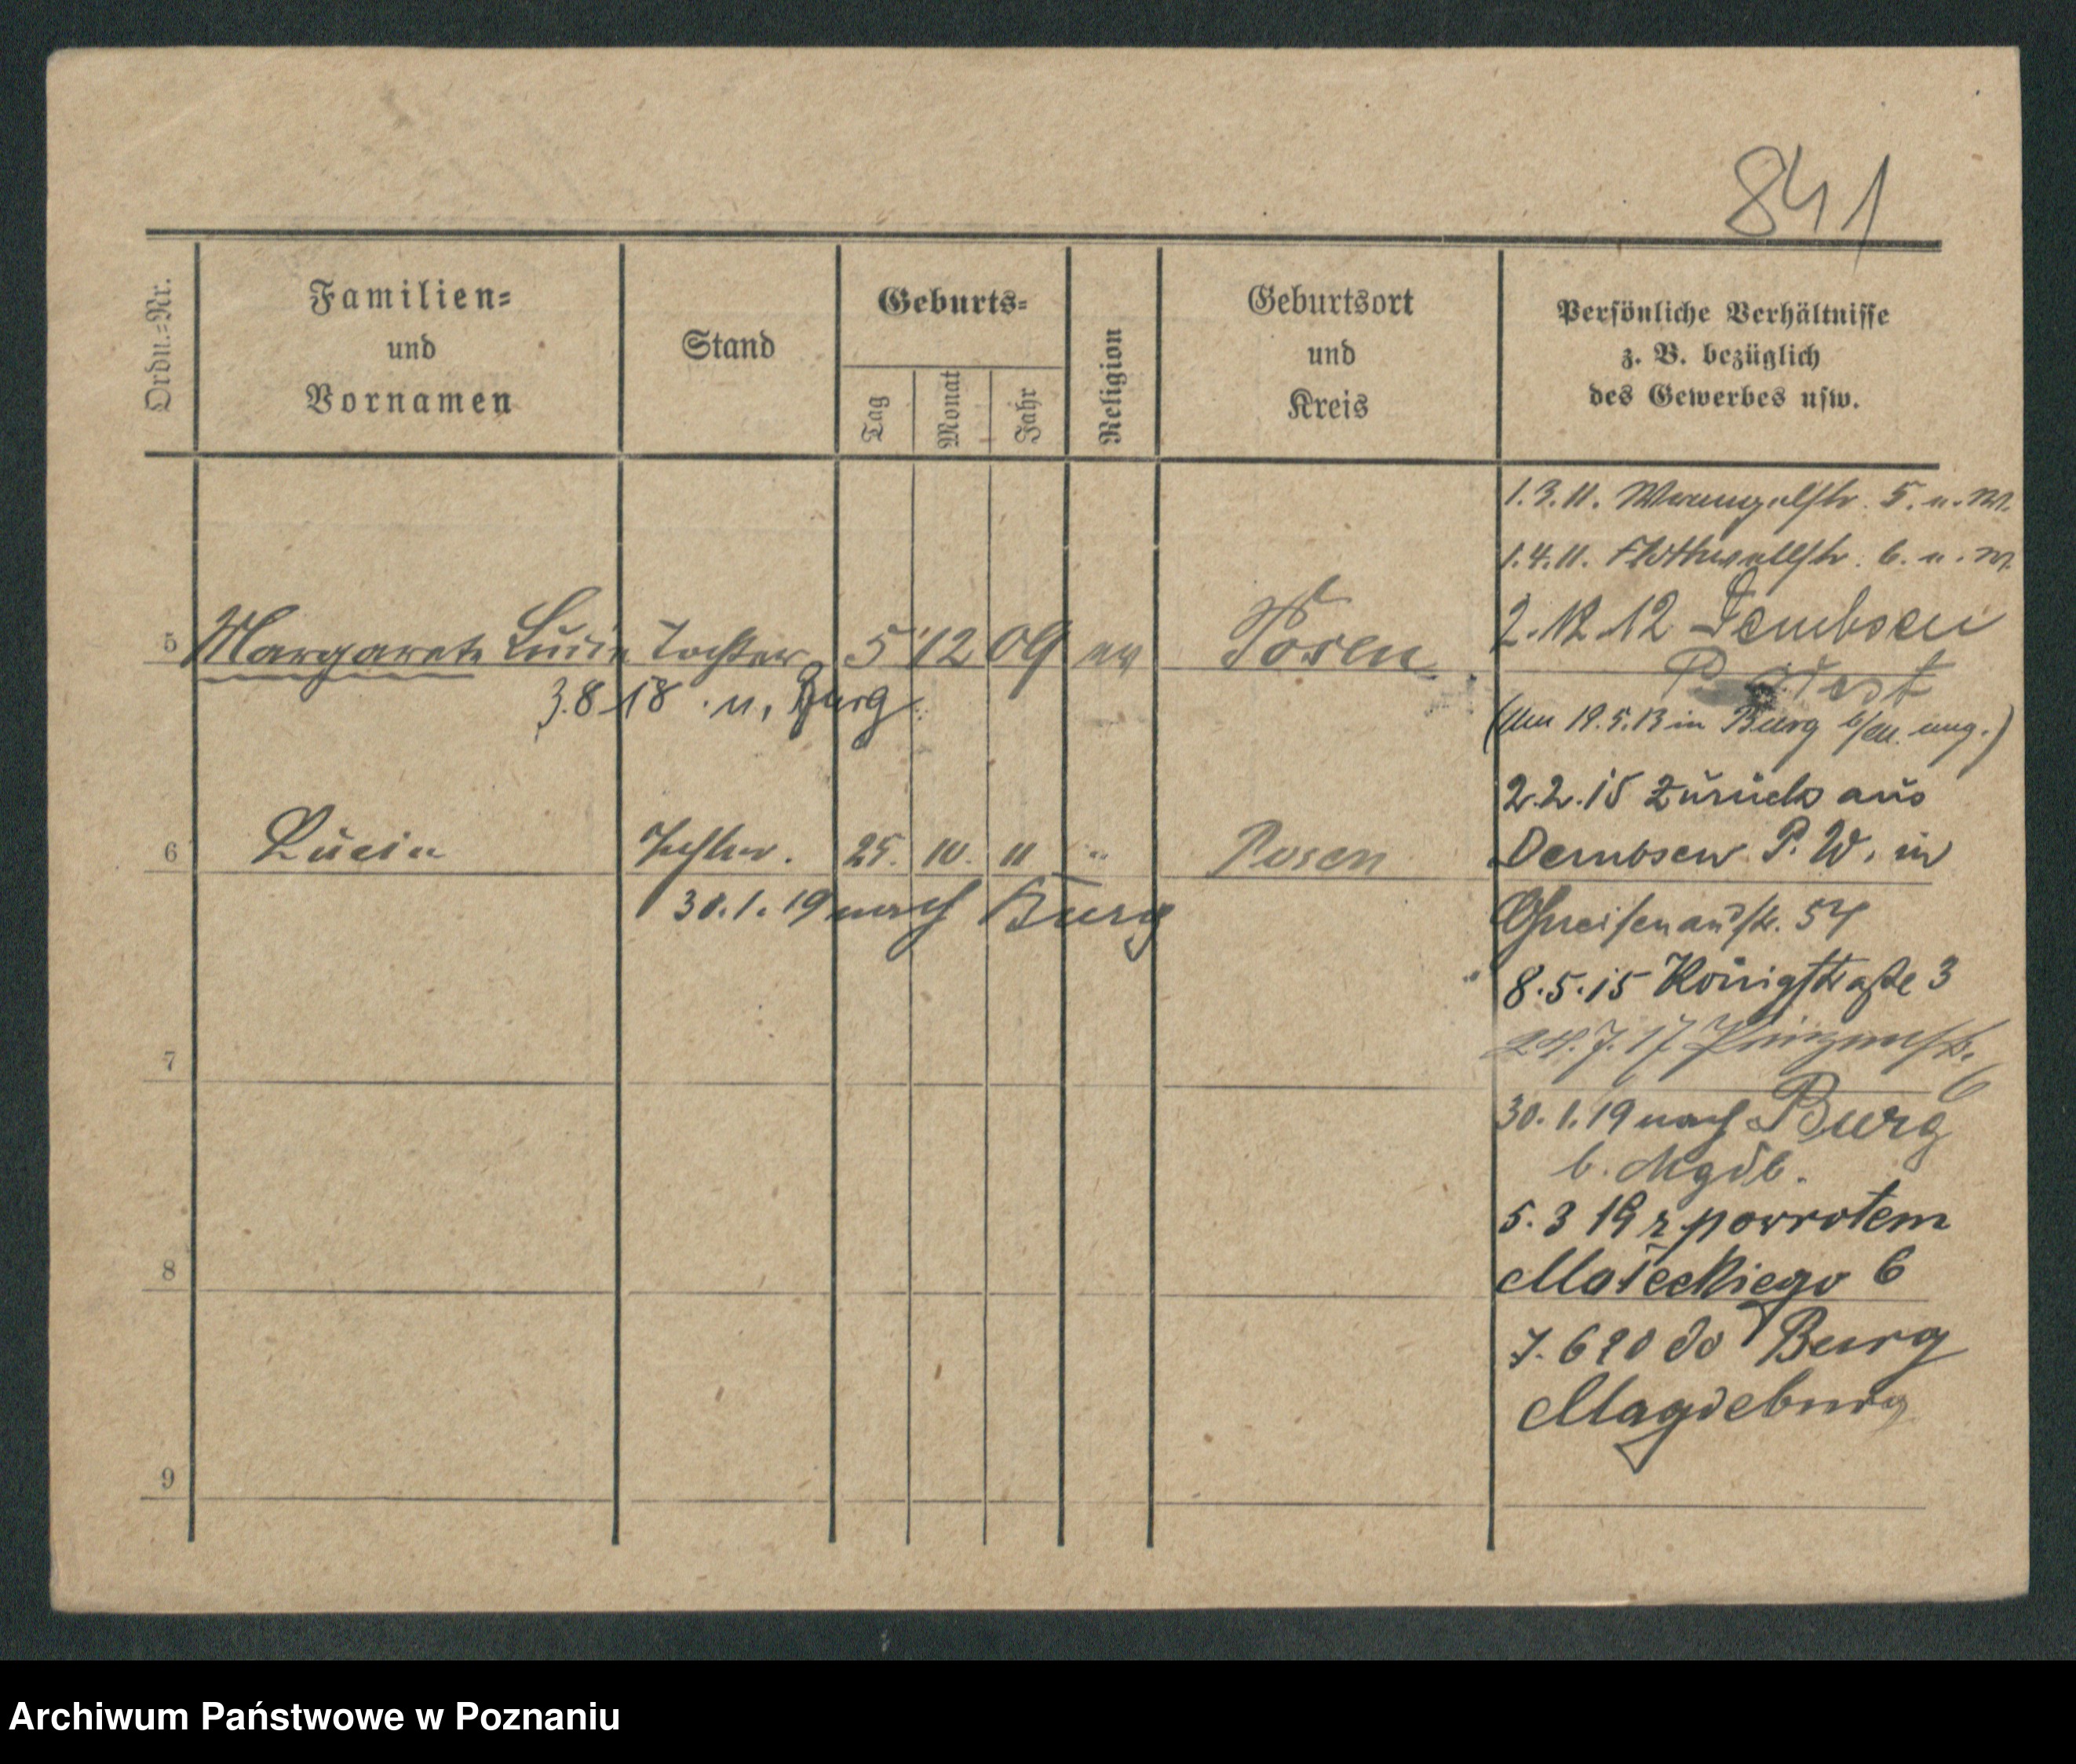 841
Ordn.=Nr.
Familien=
und
Vornamen
Stand
Geburts=
Tag
Monat
Jahr
Religion
Geburtsort
und
Kreis
Persönliche Verhältnisse
z. B. bezüglich
des Gewerbes usw.
1.3.11. 5. u. M.
1.4.11. Flottwellstr. 6. u. M.
2.12.12 Dembsen
5 Margarete Lucie Tochter 5 12 09 ev Posen
P. West
3.8 18 . n. Burg
19.5.13 in Burg
2.2.15 Zurück aus
6 Lucia Tochter. 25. 10. 11 " Posen
Dembsen P. W. in
30.1.19 nach Burg
Gneisenaustr. 54
8.5.15 Königstraße 3
7
24.7.17 Prinzenstr. 6
30.1.19 nach Burg
b. Mgdb.
5.3 19 z powrotem
8
Małeckiego 6
7.6 20 do Burg
Magdeburg
9
Archiwum Państwowe w Poznaniu